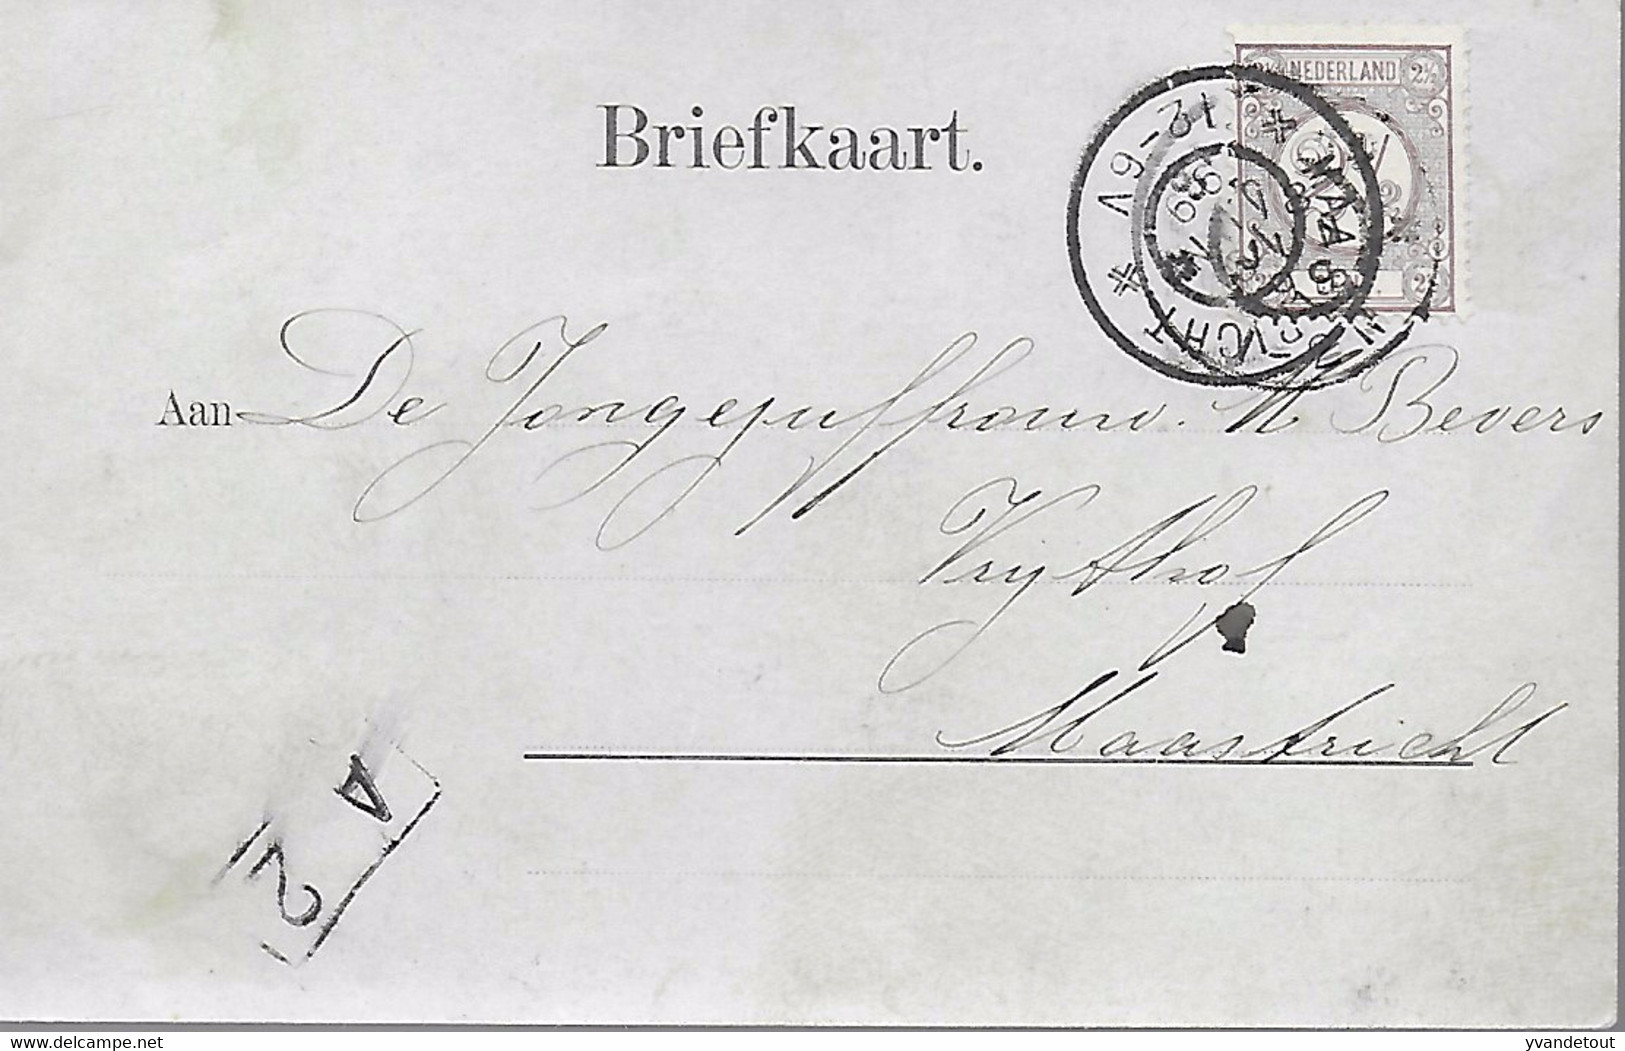 Briefkaart.
NEDERLAND 2½
12-6V
Aan De Jongejuffrouw. M Bevers
Vrythof
Maastricht
A 2
delcampe.net
yvandetout